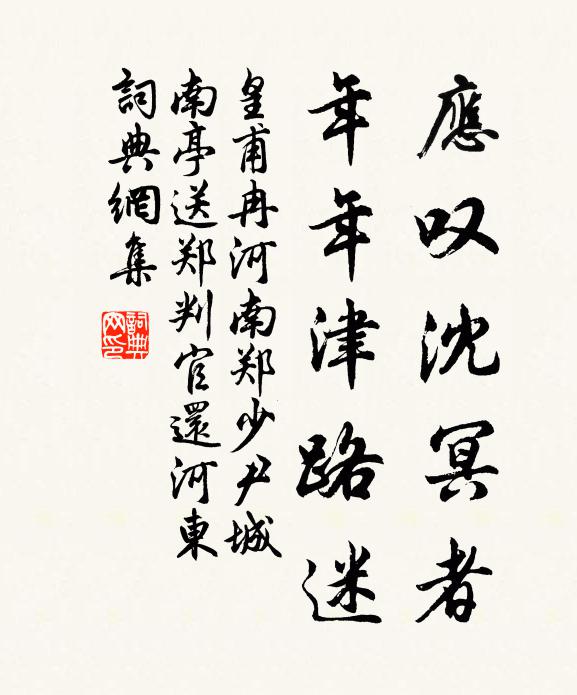 應叹沈冥者
年年津路迷
皇甫冉河南郑少尹城
南亭送郑判官還河東
詞典網集
詞典
网印